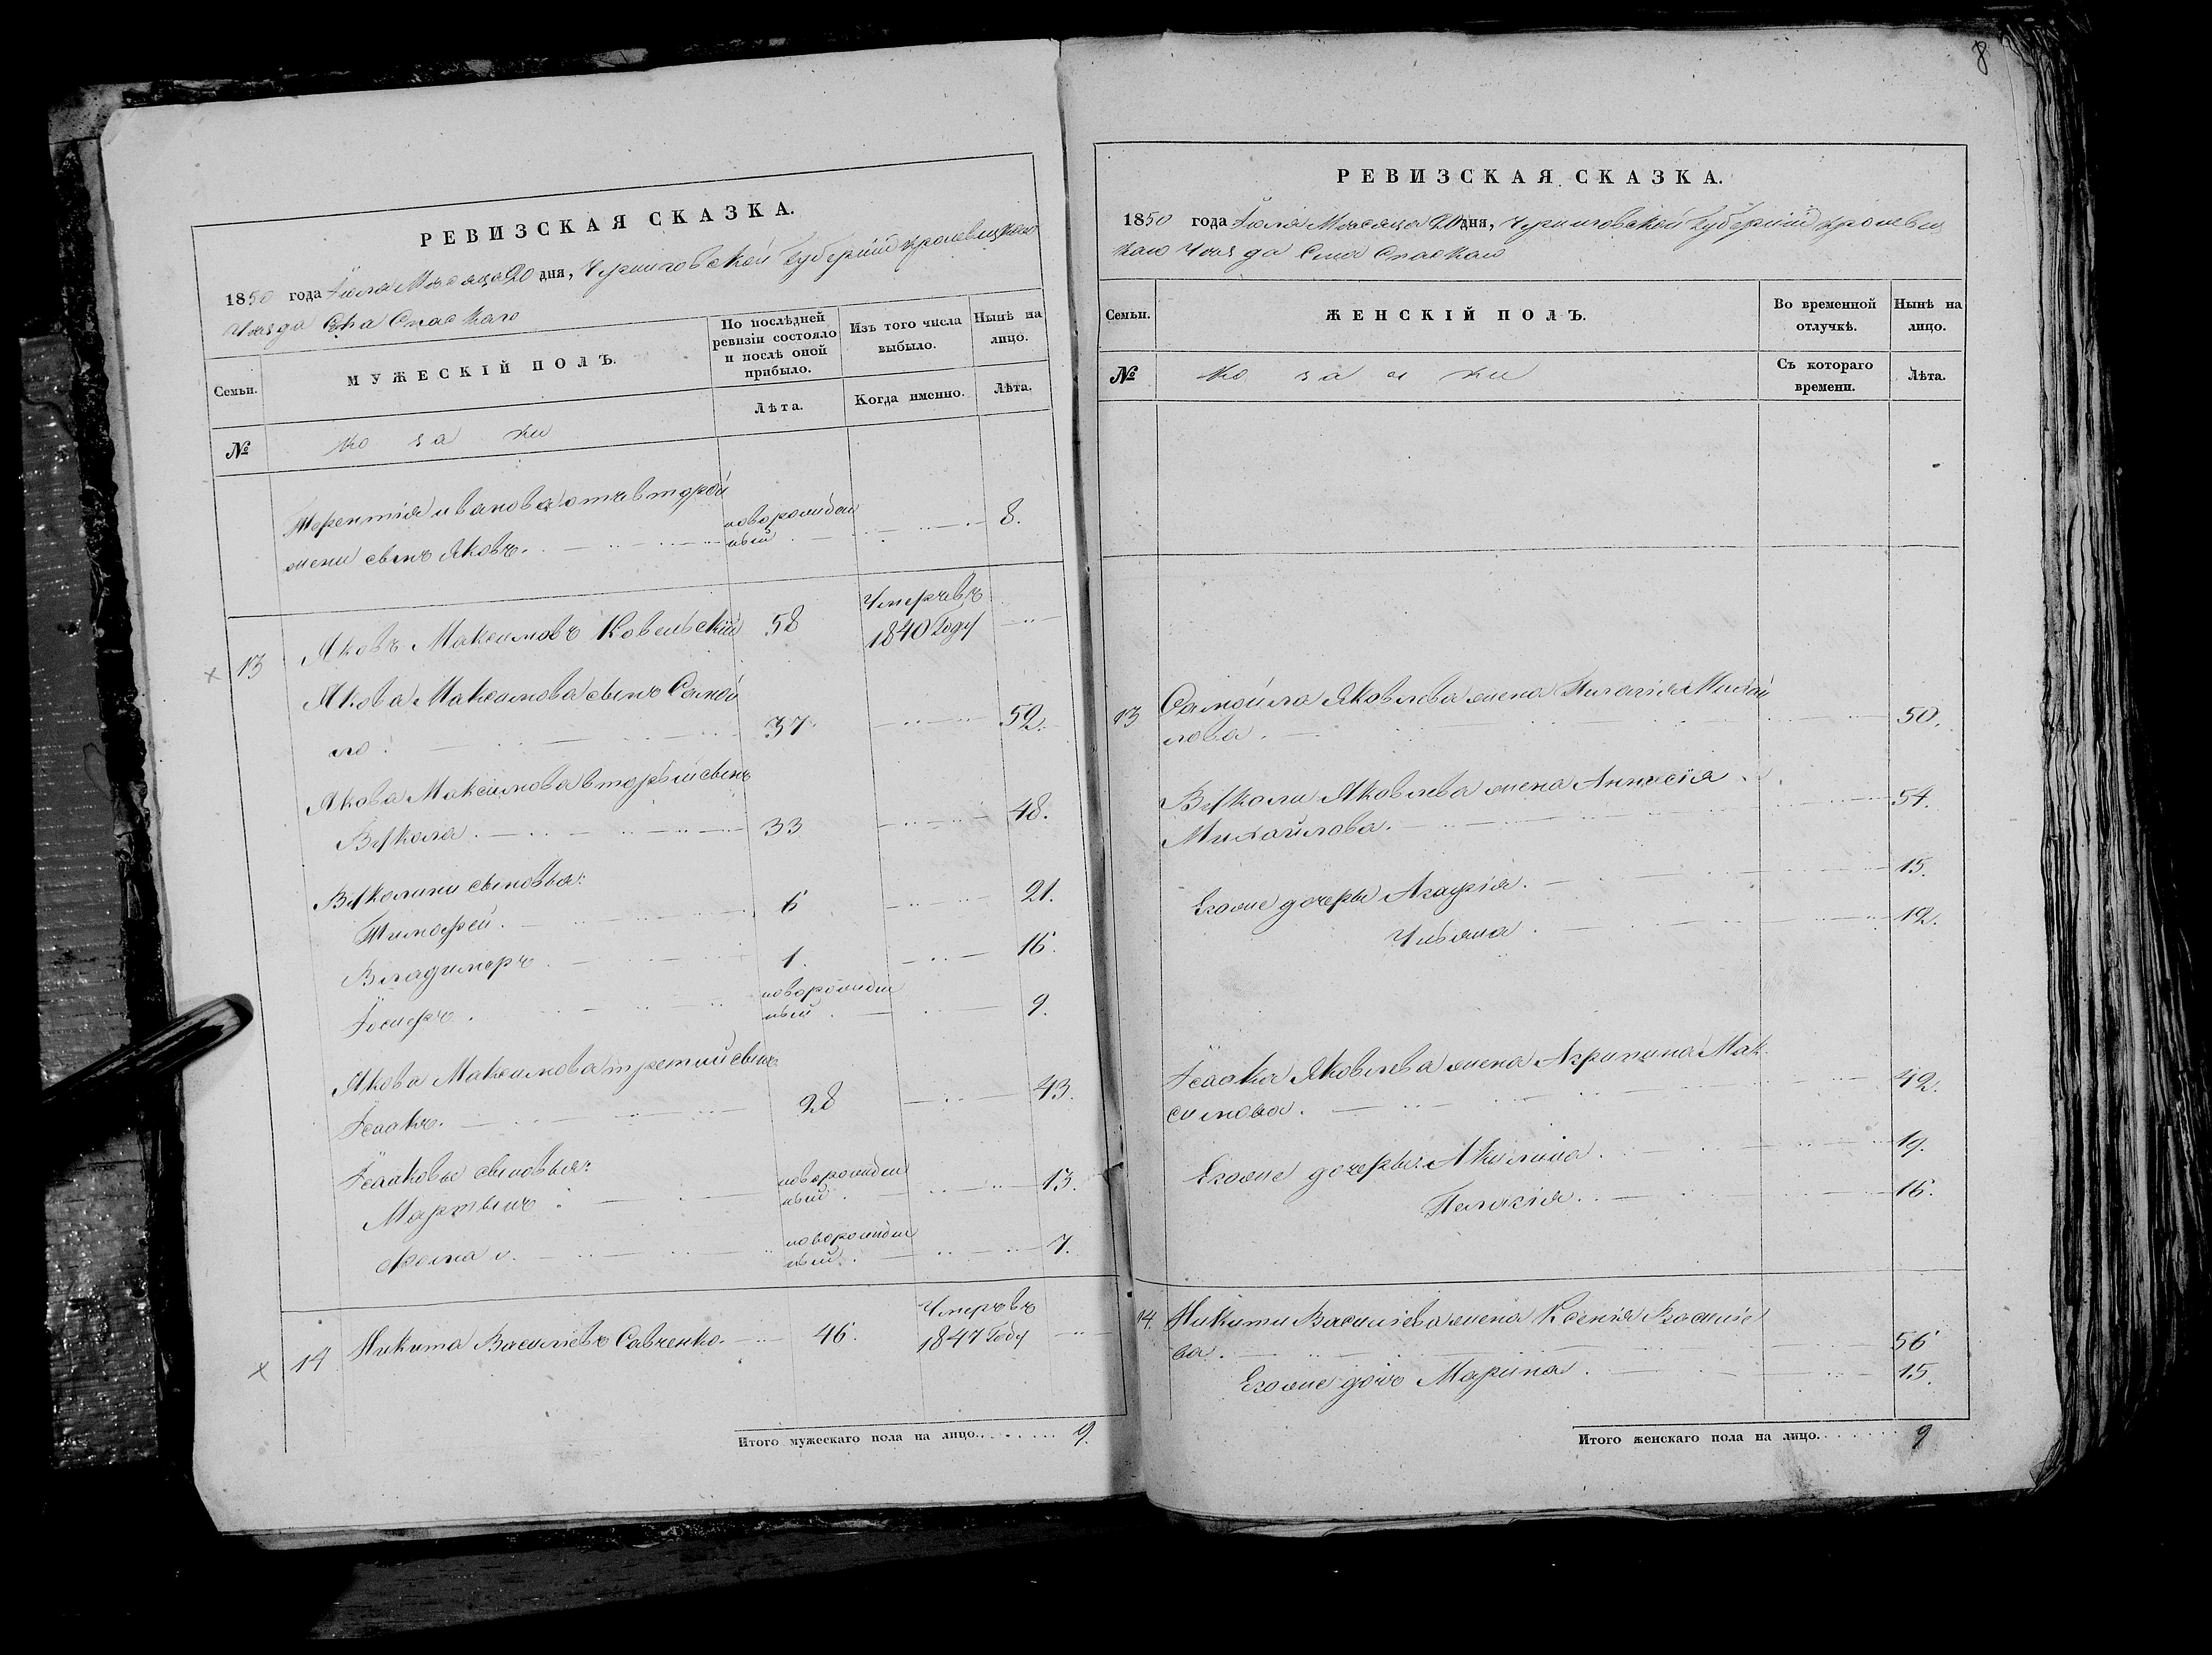 РЕВИЗСКАЯ СКАЗКА.
1850 года Іюля Мѣсяца 20 дня, Черниговской Губерніи Кролевецкаго
Уѣзда Села Спаскаго
Семьи.
МУЖЕСКІЙ ПОЛЪ.
По послѣдней ревизіи состояло и послѣ оной прибыло.
Изъ того числа выбыло.
Нынѣ на лицо.
Лѣта.
Когда именно.
Лѣта.
№
козаки
Терентія Иванова отъ второй
жены сынъ Яковъ. новорожден
ный 8.
13 Яковъ Максимовъ Ковельскій 58 Умеръ въ
1840 Году
Якова Максимова сынъ Самой
ло 37. 52.
Якова Максимова вторый сынъ
Вукола. 33 48.
Вуколини сыновья:
Тимофей. 6 21.
Владимеръ 1. 16.
Іосифъ. новорожден
ный 9.
Якова Максимова третий сынъ
Ісаакъ. 28 43.
Ісааковы сыновья:
Мартынъ новорожден
ный 13.
Фома новорожден
ный. 7.
14 Никита Васильевъ Савченко. 46. Умеръ въ
1847 Году
Итого мужескаго пола на лицо. 9.
8
РЕВИЗСКАЯ СКАЗКА.
1850 года Іюля Мѣсяца 20 дня, Черниговской Губерніи Кролевец
каго Уѣзда Села Спаскаго
Семьи.
ЖЕНСКІЙ ПОЛЪ.
Во временной отлучкѣ.
Нынѣ на лицо.
№
козаки
Съ котораго времени.
Лѣта.
13 Самойла Яковлева жена Пилагія Михай
лова. 50.
Вуколи Яковлева жена
Михайлова. 54.
Егоже дочеры Агафія. 15.
Ульяна 12.
Ісаака Яковлева жена Агрипина Мак
симова. 42.
Егоже дочеры: Акилина. 19.
Пелагія. 16.
14. Никиты Васильева жена Ксенія Василіе
ва. 56
Егоже дочь Марина. 15.
Итого женскаго пола на лицо. 9